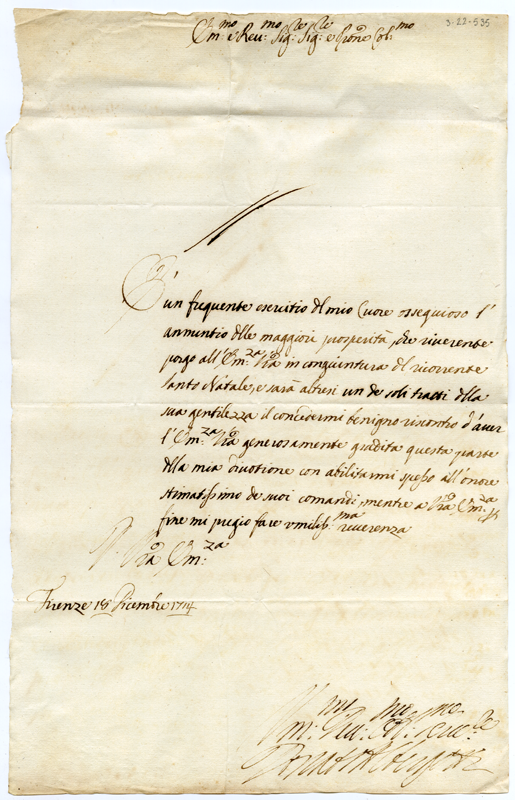 3-22-535
Em:mo e Reu:mo Sig:re Sig:re e Prone Col:mo
E' un frequente esercitio del mio Cuore ossequioso l'
annuntio delle maggiori prosperità, che riverente
porgo all'Em:za Vra in congiuntura del ricorrente
Santo Natale, e sarà altresì un de soliti tratti della
sua gentilezza il concedermi benigno riscontro d'aver
l'Em:za Vra generosamente gradita questa parte
della mia divotione con abilitarmi spesso all'onore
stimatissimo de suoi comandi, mentre a Vra Em:za
fine mi pregio fare umiliss:ma riverenza
Vra Em:za
Firenze 18 Dicembre 1714